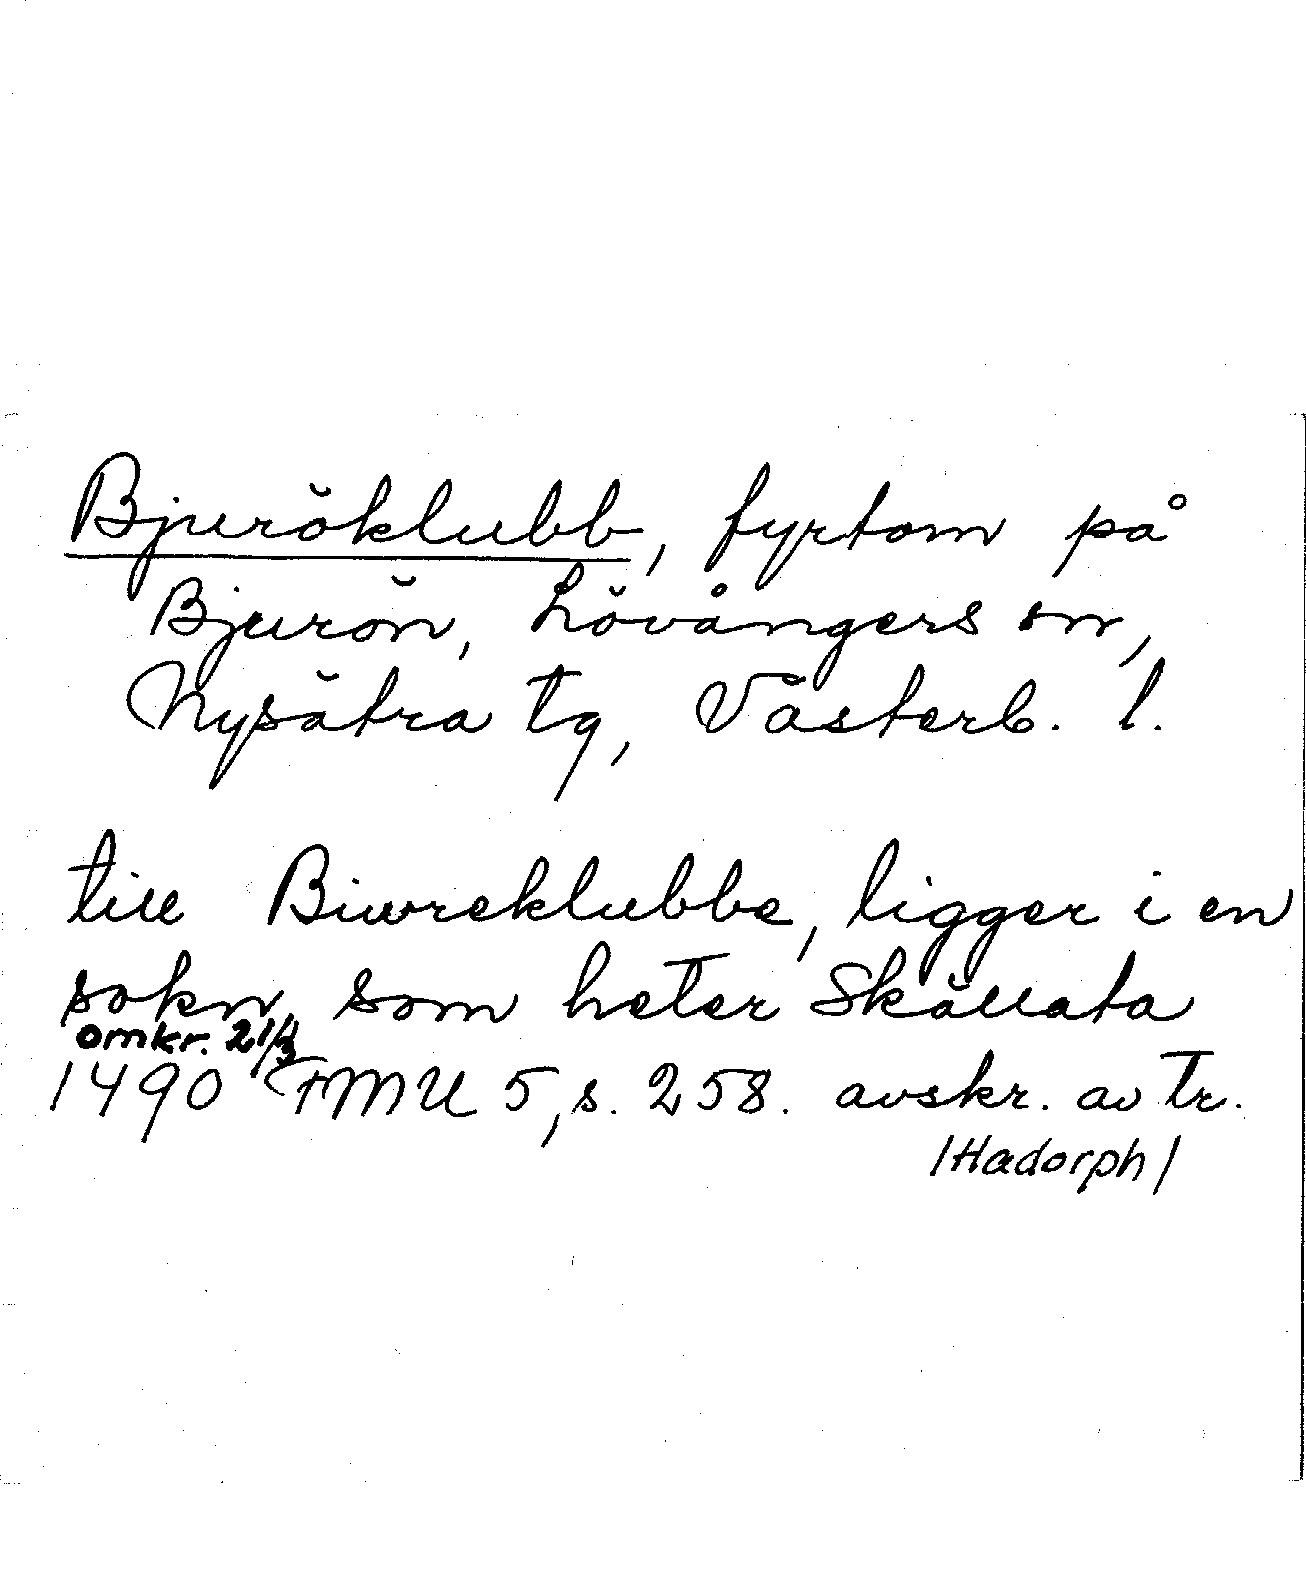 Bjuröklubb, fyrtorn på
Bjurön, Lövångers sn,
Nysätra tg, Västerb. l.
till Biwreklubbe, ligger i en
sokn som heter Skällata
omkr. 21/3
1490 FMU 5, s. 258. avskr. av tr.
/Hadorph/